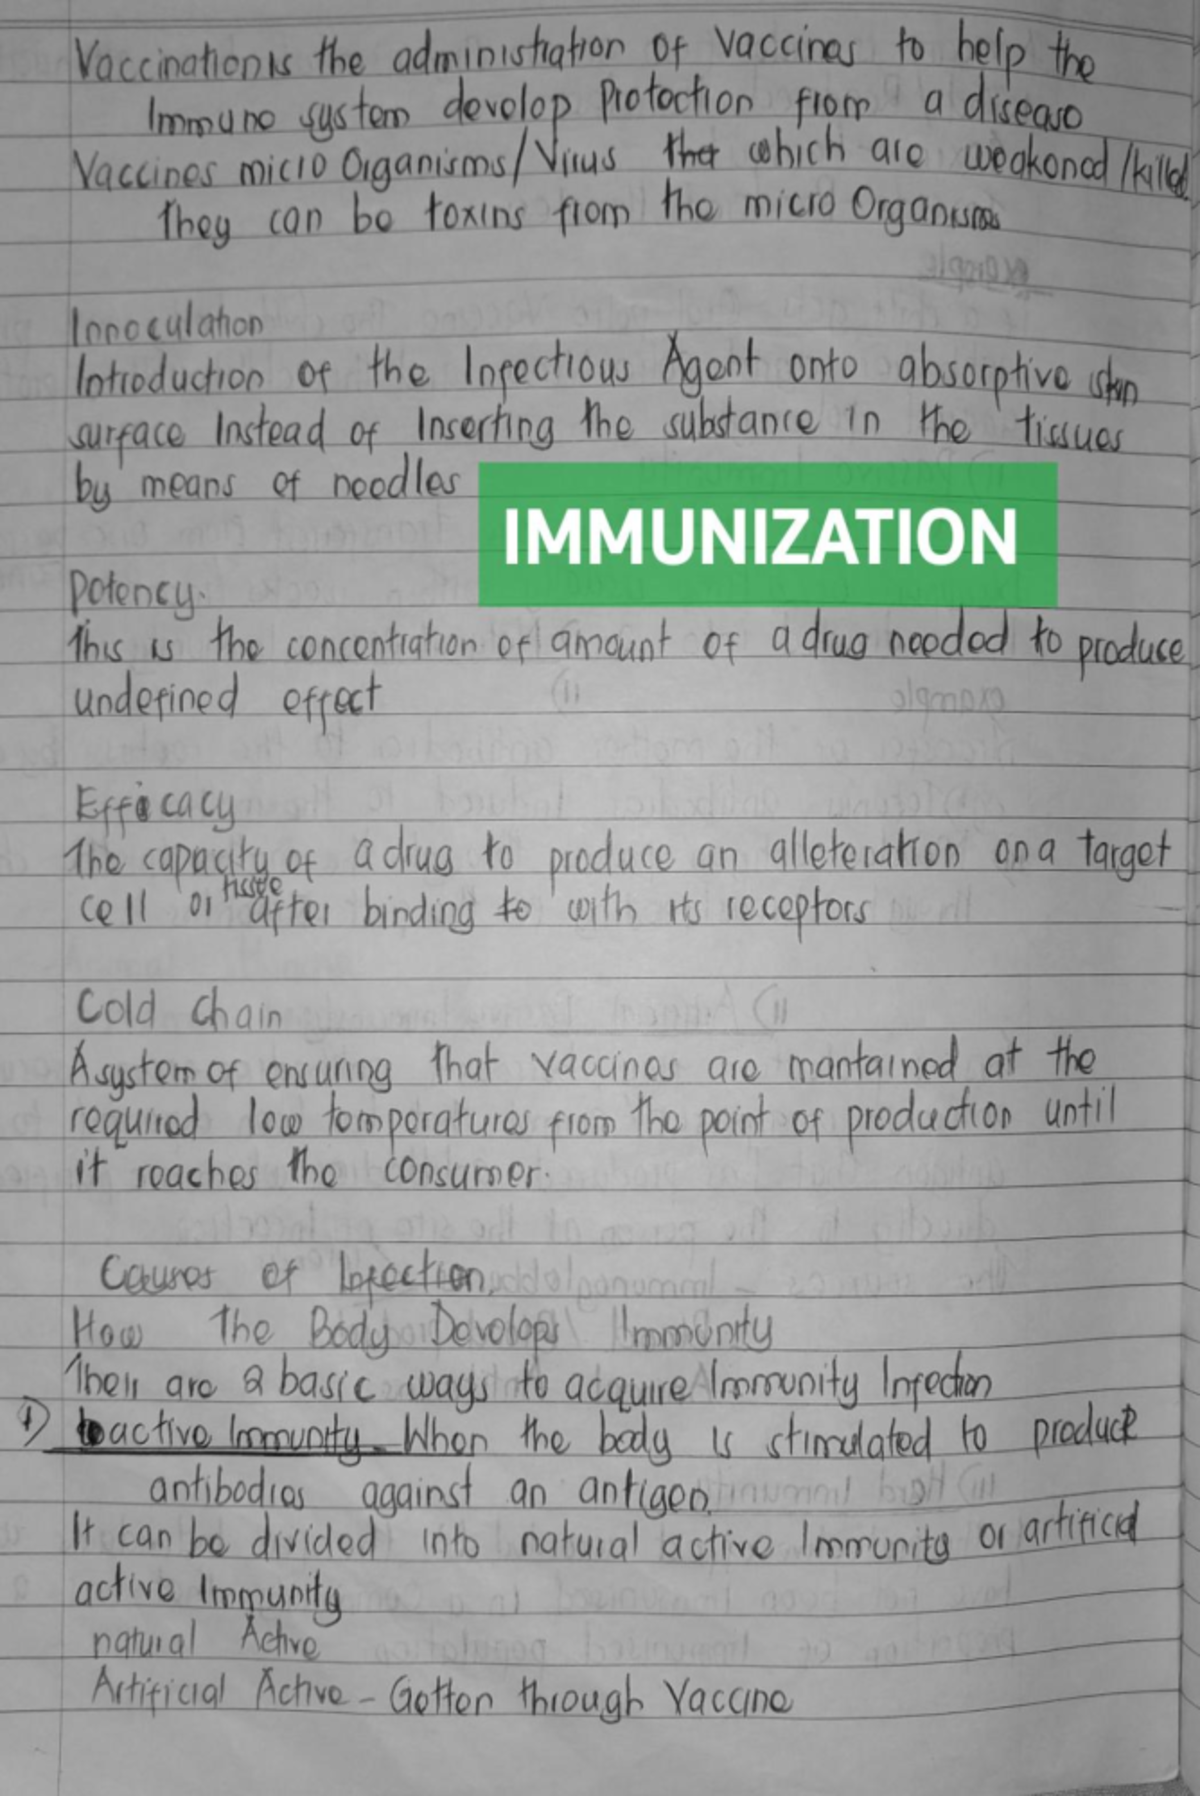 Vaccination is the administration of vaccines to help the
Immune system develop Protection from a disease
Vaccines micro Organisms/Virus that which are weakened/killed
They can be toxins from the micro Organisms
Innoculation
Introduction of the Infectious Agent onto absorptive skin
surface Instead of Inserting the substance in the tissues
by means of needles
IMMUNIZATION
Potency.
This is the concentration of amount of a drug needed to produce
undefined effect
Efficacy
The capacity of a drug to produce an alleteration on a target
cell or tissue after binding to with its receptors
Cold Chain
A system of ensuring that vaccines are mantained at the
required low temperatures from the point of production until
it reaches the consumer.
Causes of Infection.
How The Body Develops Immunity
Their are 2 basic ways to acquire Immunity Infection
1) active Immunity - When the body is stimulated to produce
antibodies against an antigen.
It can be divided into natural active Immunity or artificial
active Immunity
natural Active
Artificial Active - Gotten through Vaccine